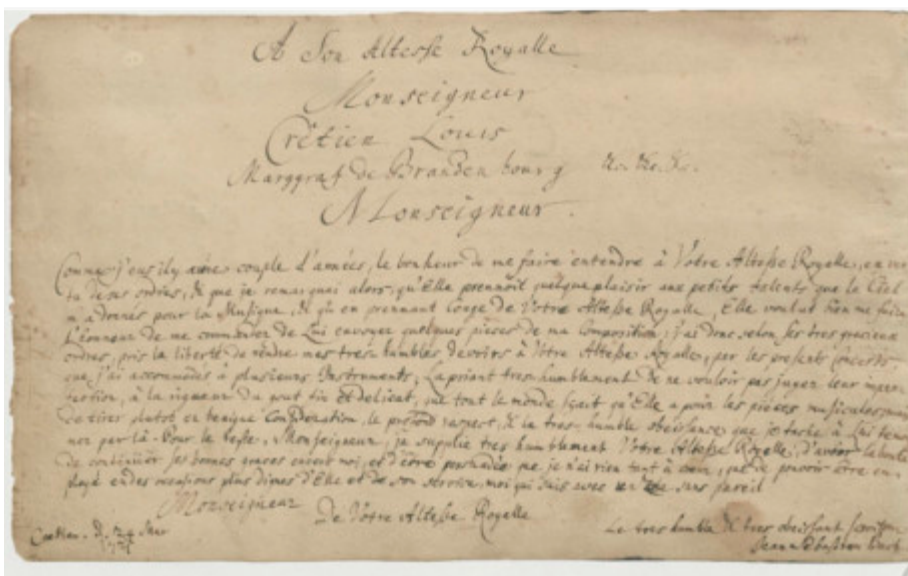 A Son Altesse Royalle
Monseigneur
Crètien Louis
Marggraf de Brandenbourg &c. &c. &c.
Monseigneur.
Comme j'eus il y a une couple d'années, le bonheur de me faire entendre à Votre Altesse Royalle, en ver
tu de ses ordres, & que je remarquai alors, qu'Elle prennoit quelque plaisir aux petits talents que le Ciel
m'a donnés pour la Musique, & qu'en prennant Conge de Votre Altesse Royalle, Elle voulut bien me faire
l'honneur de me commander de Lui envoyer quelques pieces de ma Composition: j'ai donc selon ses tres gracieux
ordres, pris la liberté de rendre mes tres-humbles devoirs à Votre Altesse Royalle, par les presents Concerts,
que j'ai accommodés à plusieurs Instruments; La priant tres-humblement de ne vouloir pas juger leur imperfe
ction, à la rigueur du gout fin et delicat, que tout le monde sçait qu'Elle a pour les pièces musicales; mais
de tirer plutot en benigne Consideration, le profond respect, & la tres-humble obeissance que je tache à Lui temoi
ner par là. Pour le reste, Monseigneur, je supplie tres humblement Votre Altesse Royalle, d'avoir la bonté
de continüer ses bonnes graces envers moi, et d'être persuadèe que je n'ai rien tant à cœur, que de pouvoir être em
ployé en des occasions plus dignes d'Elle et de son service, moi qui suis avec un zele sans pareil
Monseigneur
De Votre Altesse Royalle
Coethen. d. 24 Mar
1721
Le tres humble & tres obeissant serviteur
Jean Sebastien Bach